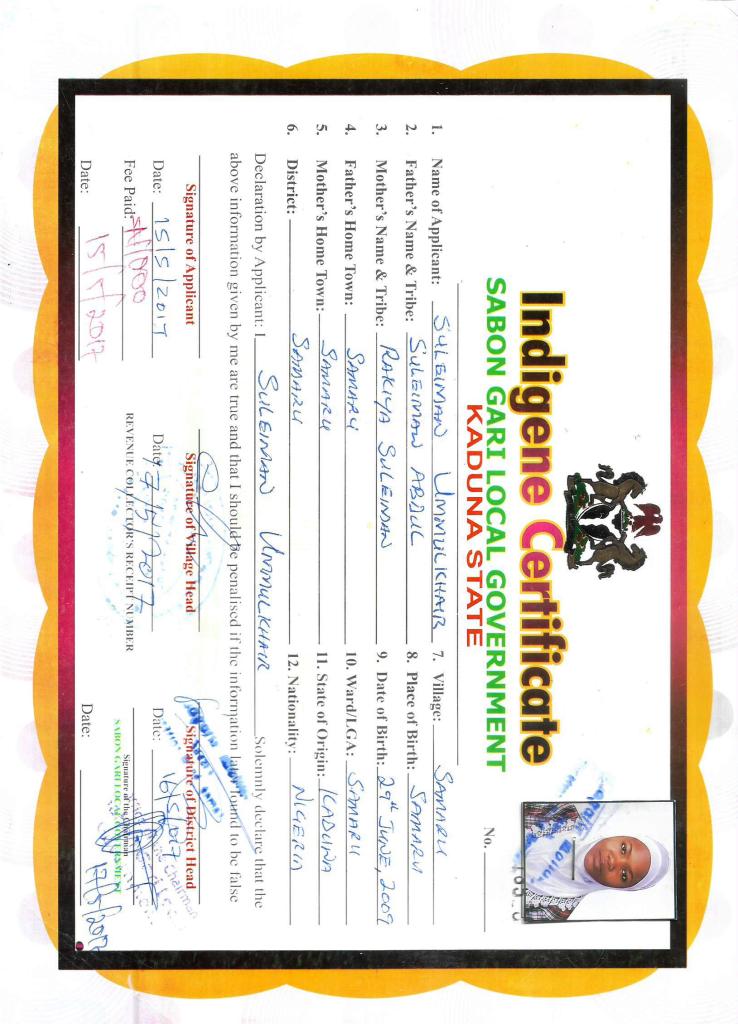 Indigene Certificate
SABON GARI LOCAL GOVERNMENT
KADUNA STATE
No.
1. Name of Applicant: SULEIMAN UMMULKHAIR 7. Village: SAMARU
2. Father's Name & Tribe: SULEIMAN ABDUL 8. Place of Birth: SAMARU
3. Mother's Name & Tribe: RAKIYA SULEIMAN 9. Date of Birth: 29th JUNE, 2009
4. Father's Home Town: SAMARU 10. Ward/LGA: SAMARU
5. Mother's Home Town: SAMARU 11. State of Origin: KADUNA
6. District: SAMARU 12. Nationality: NIGERIA
Declaration by Applicant: I SULEIMAN UMMULKHAIR Solemnly declare that the
above information given by me are true and that I should be penalised if the information later found to be false
Signature of Applicant Signature of Village Head Signature of District Head
Date: 15/5/2017 Date: 7/5/2017 Date: 16/5/2017
Fee Paid: REVENUE COLLECTOR'S RECEIPT NUMBER Signature of the Chairman
SABON GARI LOCAL GOVERNMENT
Date: 15/5/2017 Date: 17/5/2017